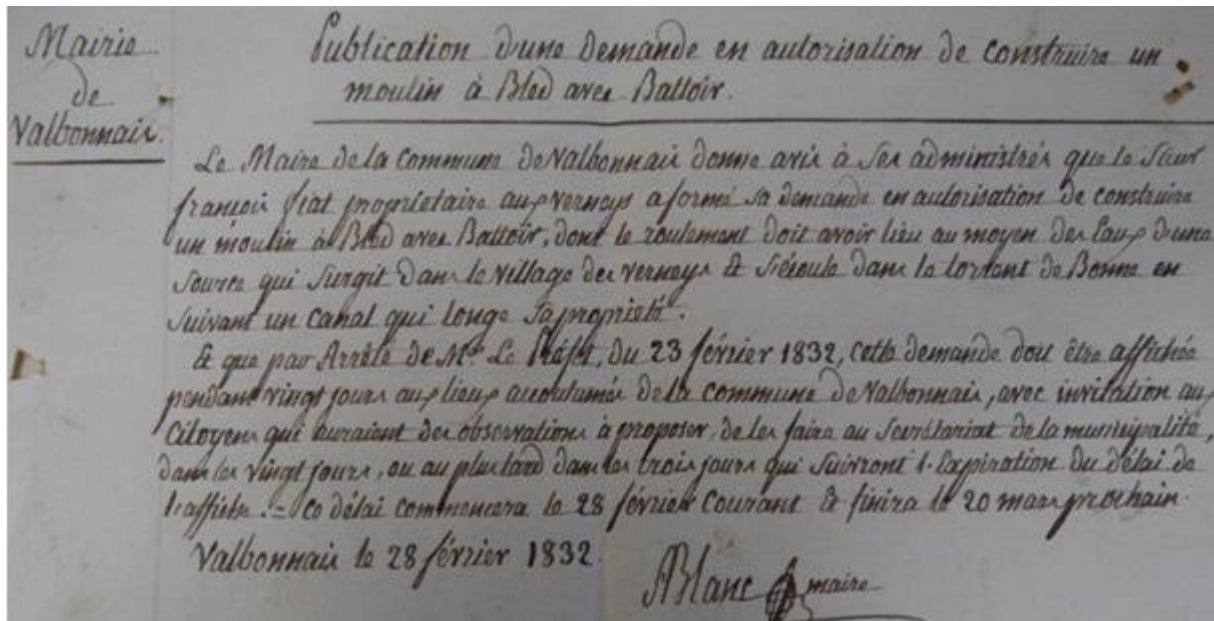 Mairie
de
Valbonnais.
Publication d'une demande en autorisation de construire un
moulin à Bled avec Battoir.
Le Maire de la Commune de Valbonnais donne avis à ses administrés que le Sieur
françois fiat propriétaire aux verneys a formé sa demande en autorisation de construire
un moulin à Bled avec Battoir, dont le roulement doit avoir lieu au moyen des Eaux d'une
source qui surgit dans le village des verneys & s'écoule dans le torrent de Bonne en
suivant un canal qui longe sa propriété.
& que par Arrêté de Mr. Le Préfet, du 23 février 1832, cette demande doit être affichée
pendant vingt jours aux lieux accoutumés de la commune de Valbonnais, avec invitation aux
Citoyens qui auraient des observations à proposer, de les faire au Secrétariat de la municipalité,
dans les vingt jours, ou au plus tard dans les trois jours qui suivront l'Expiration du délai de
l'affiche. = Ce délai commencera le 28 février courant & finira le 20 mars prochain.
Valbonnais le 28 février 1832.
ABlanc maire